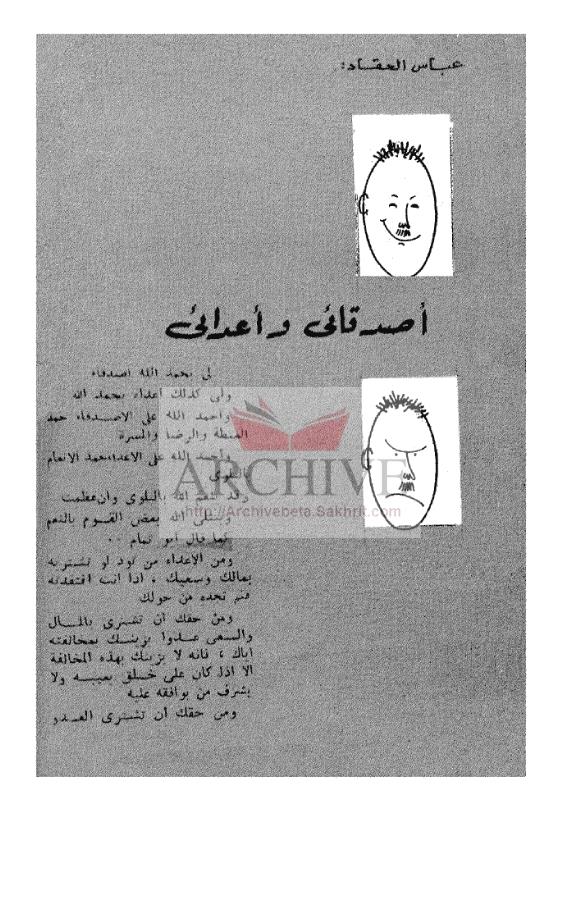 عباس العقاد:
أصدقائى وأعدائى
لى بحمد الله أصدقاء
ولى كذلك أعداء بحمد الله
وأحمد الله على الاصدقاء حمد
الغبطة والرضا والمسرة
وأحمد الله على الاعداء حمد الانعام
بالبلوى
وقد ينعم الله بالبلوى وان عظمت
ويبتلى الله بعض القوم بالنعم
كما قال أبو تمام ..
ومن الاعداء من تود لو تشتريه
بمالك وسعيك ، اذا أنت افتقدته
فلم تجده من حولك
ومن حقك أن تشترى بالمال
والسعى عدوا يزينك بمخالفته
اياك ، فانه لا يزينك بهذه المخالفة
الا اذا كان على خلق يعيبه ولا
يشرف من يوافقه عليه
ومن حقك أن تشترى العدو
ARCHIVE
http://Archivebeta.Sakhrit.com